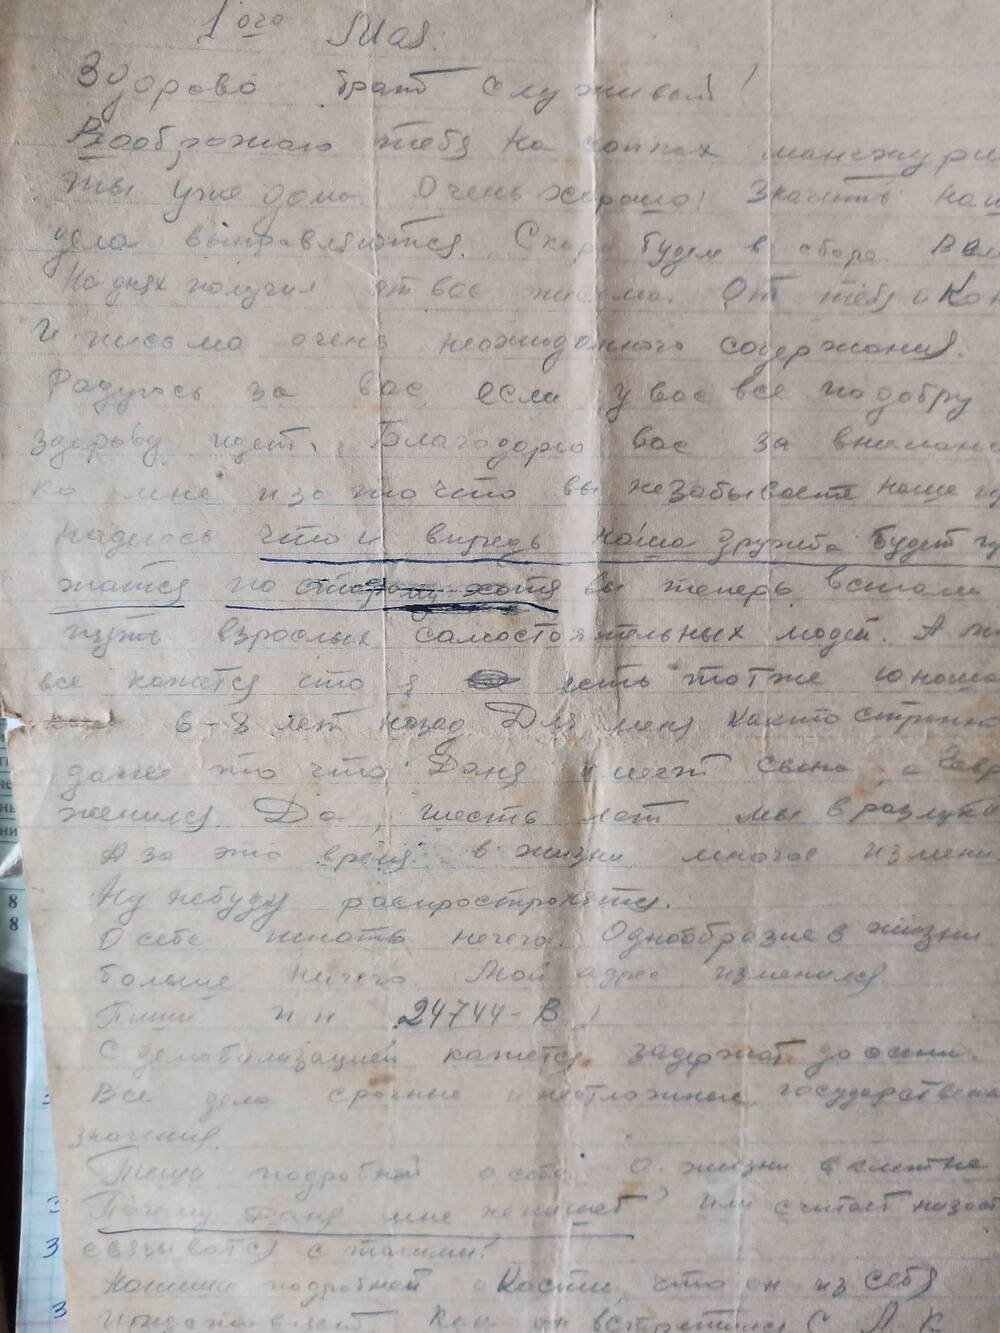 1ого Мая.
Здорово брат служивый!
Воображаю тебя на сопках манчжури
ты уже дома. Очень хорошо! Значить наш
дела выправляются. Скоро будем в сборе. Все
На днях получил от вас письма. От тебя и Кон
И письма очень неожиданного содержания.
Радуюсь за вас если у вас все подобру
здорову идет. Благодарю вас за внимани
ко мне и за то что вы незабываете наше
надеюсь что и впредь наша дружба будет
жатся по старому хотя вы теперь встали
путь взрослых самостоятельных людей. А
все кажется что я есть тот же юноша
6-8 лет назад Для меня както странно
даже то что Даня имеет сына, а Гавр
женился Да, шесть лет мы в разлуке
А за это время в жизни многое измени
Ну небуду распространятся.
О себе писать нечего. Однообразие в жизни
больше ничего. Мой адрес изменился
Пиши п п 24744-В
С демобилизацией кажется задержат до осени.
Все дела срочные и неотложные, государствена
значения.
Пиши подробней о себе. О жизни в
Почему Даня мне непишет? Или считает низост
связыватся с такими?
Напиши подробней о Кости, что он из себя
Как он встретился С Л. К